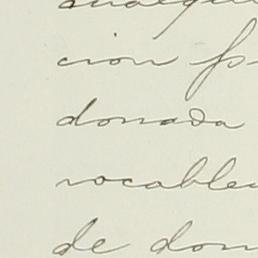 cion
donada
vocable
de don